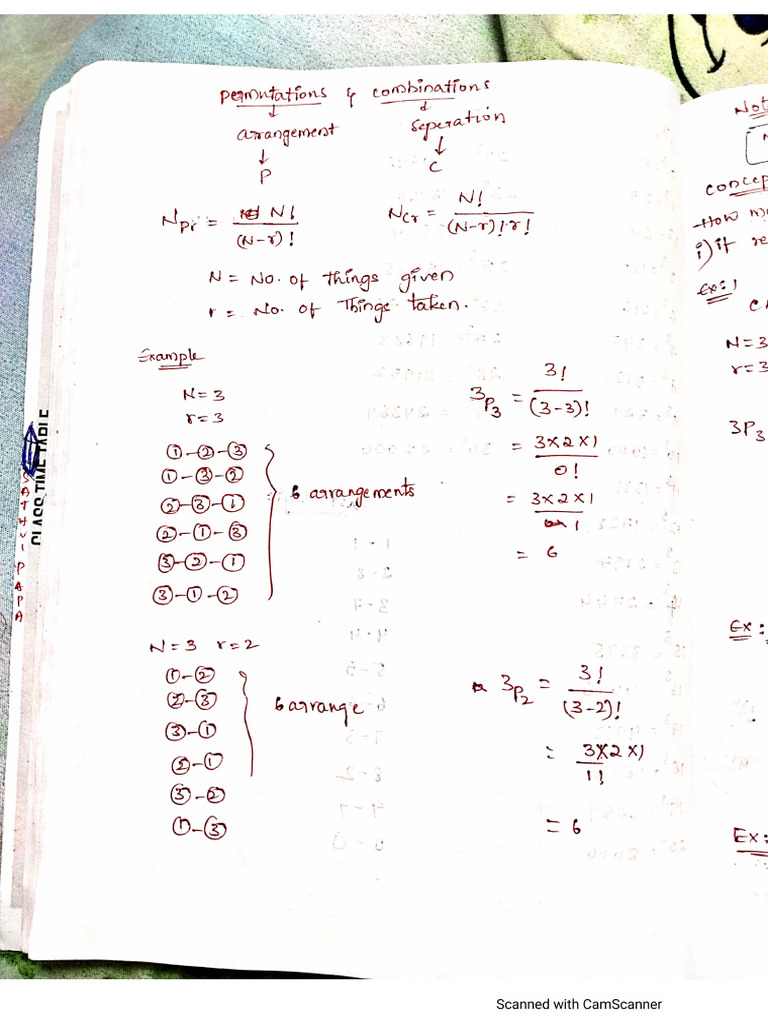 Permutations & Combinations
↓ ↓
arrangement Seperation
↓ ↓
P C
NPr = N! / (N-r)! NCr = N! / (N-r)!.r!
N = No. of things given
r = No. of Things taken.
Example
N=3
r=3
①-②-③
①-③-②
②-③-①
②-①-③
③-②-①
③-①-②
6 arrangements
3P3 = 3! / (3-3)!
= 3×2×1 / 0!
= 3×2×1 / 1
= 6
N=3 r=2
①-②
②-③
③-①
②-①
③-②
①-③
6 arrange
3P2 = 3! / (3-2)!
= 3×2×1 / 1!
= 6
CLASS TIME TABLE
SATHVI PAPA
Not
Concep
How m
i) if re
Ex:1
N=3
r=3
3P3
Ex:
Ex:
Scanned with CamScanner